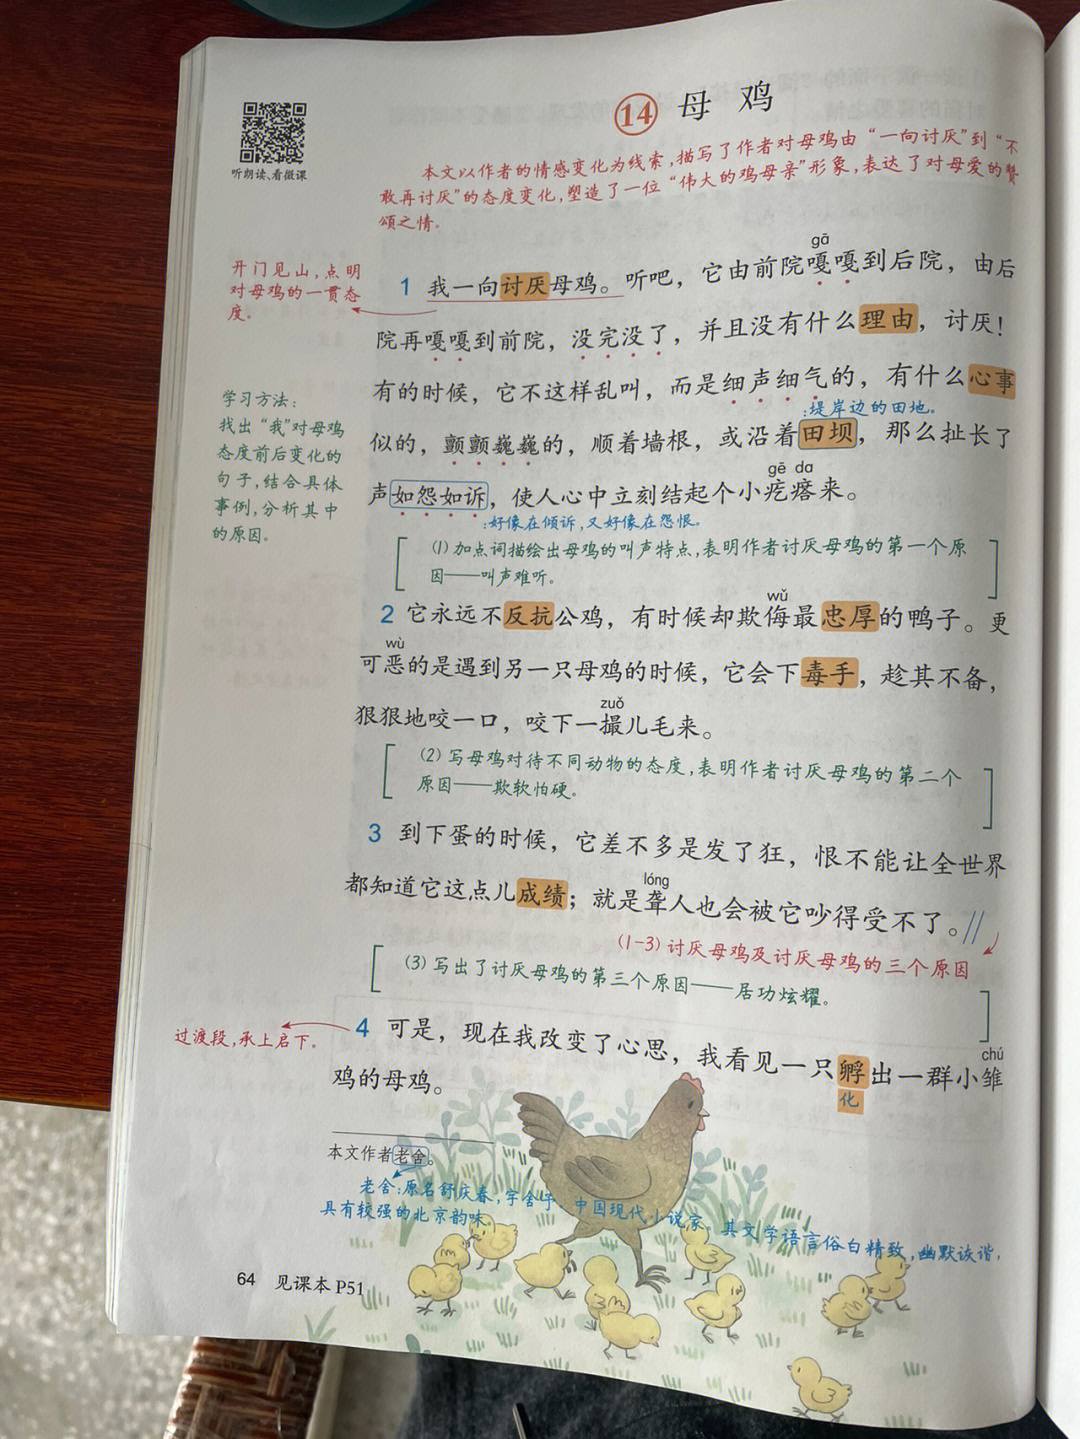 听朗读、看微课
14 母 鸡
本文以作者的情感变化为线索,描写了作者对母鸡由“一向讨厌”到“不
敢再讨厌”的态度变化,塑造了一位“伟大的鸡母亲”形象,表达了对母爱的赞
颂之情。
开门见山,点明
对母鸡的一贯态
度。
gā
1 我一向讨厌母鸡。听吧,它由前院嘎嘎到后院,由后
院再嘎嘎到前院,没完没了,并且没有什么理由,讨厌!
有的时候,它不这样乱叫,而是细声细气的,有什么心事
:堤岸边的田地。
似的,颤颤巍巍的,顺着墙根,或沿着田坝,那么扯长了
gē da
声如怨如诉,使人心中立刻结起个小疙瘩来。
:好像在倾诉,又好像在怨恨。
学习方法:
找出“我”对母鸡
态度前后变化的
句子,结合具体
事例,分析其中
的原因。
(1)加点词描绘出母鸡的叫声特点,表明作者讨厌母鸡的第一个原
因——叫声难听。
wǔ
2 它永远不反抗公鸡,有时候却欺侮最忠厚的鸭子。更
wù
可恶的是遇到另一只母鸡的时候,它会下毒手,趁其不备,
zuǒ
狠狠地咬一口,咬下一撮儿毛来。
(2)写母鸡对待不同动物的态度,表明作者讨厌母鸡的第二个
原因——欺软怕硬。
3 到下蛋的时候,它差不多是发了狂,恨不能让全世界
lóng
都知道它这点儿成绩;就是聋人也会被它吵得受不了。//
(1-3)讨厌母鸡及讨厌母鸡的三个原因
(3)写出了讨厌母鸡的第三个原因——居功炫耀。
过渡段,承上启下。
chú
4 可是,现在我改变了心思,我看见一只孵出一群小雏
化
鸡的母鸡。
本文作者老舍。
老舍:原名舒庆春,字舍予 中国现代小说家。其文学语言俗白精致,幽默诙谐,
具有较强的北京韵味
64 见课本P51